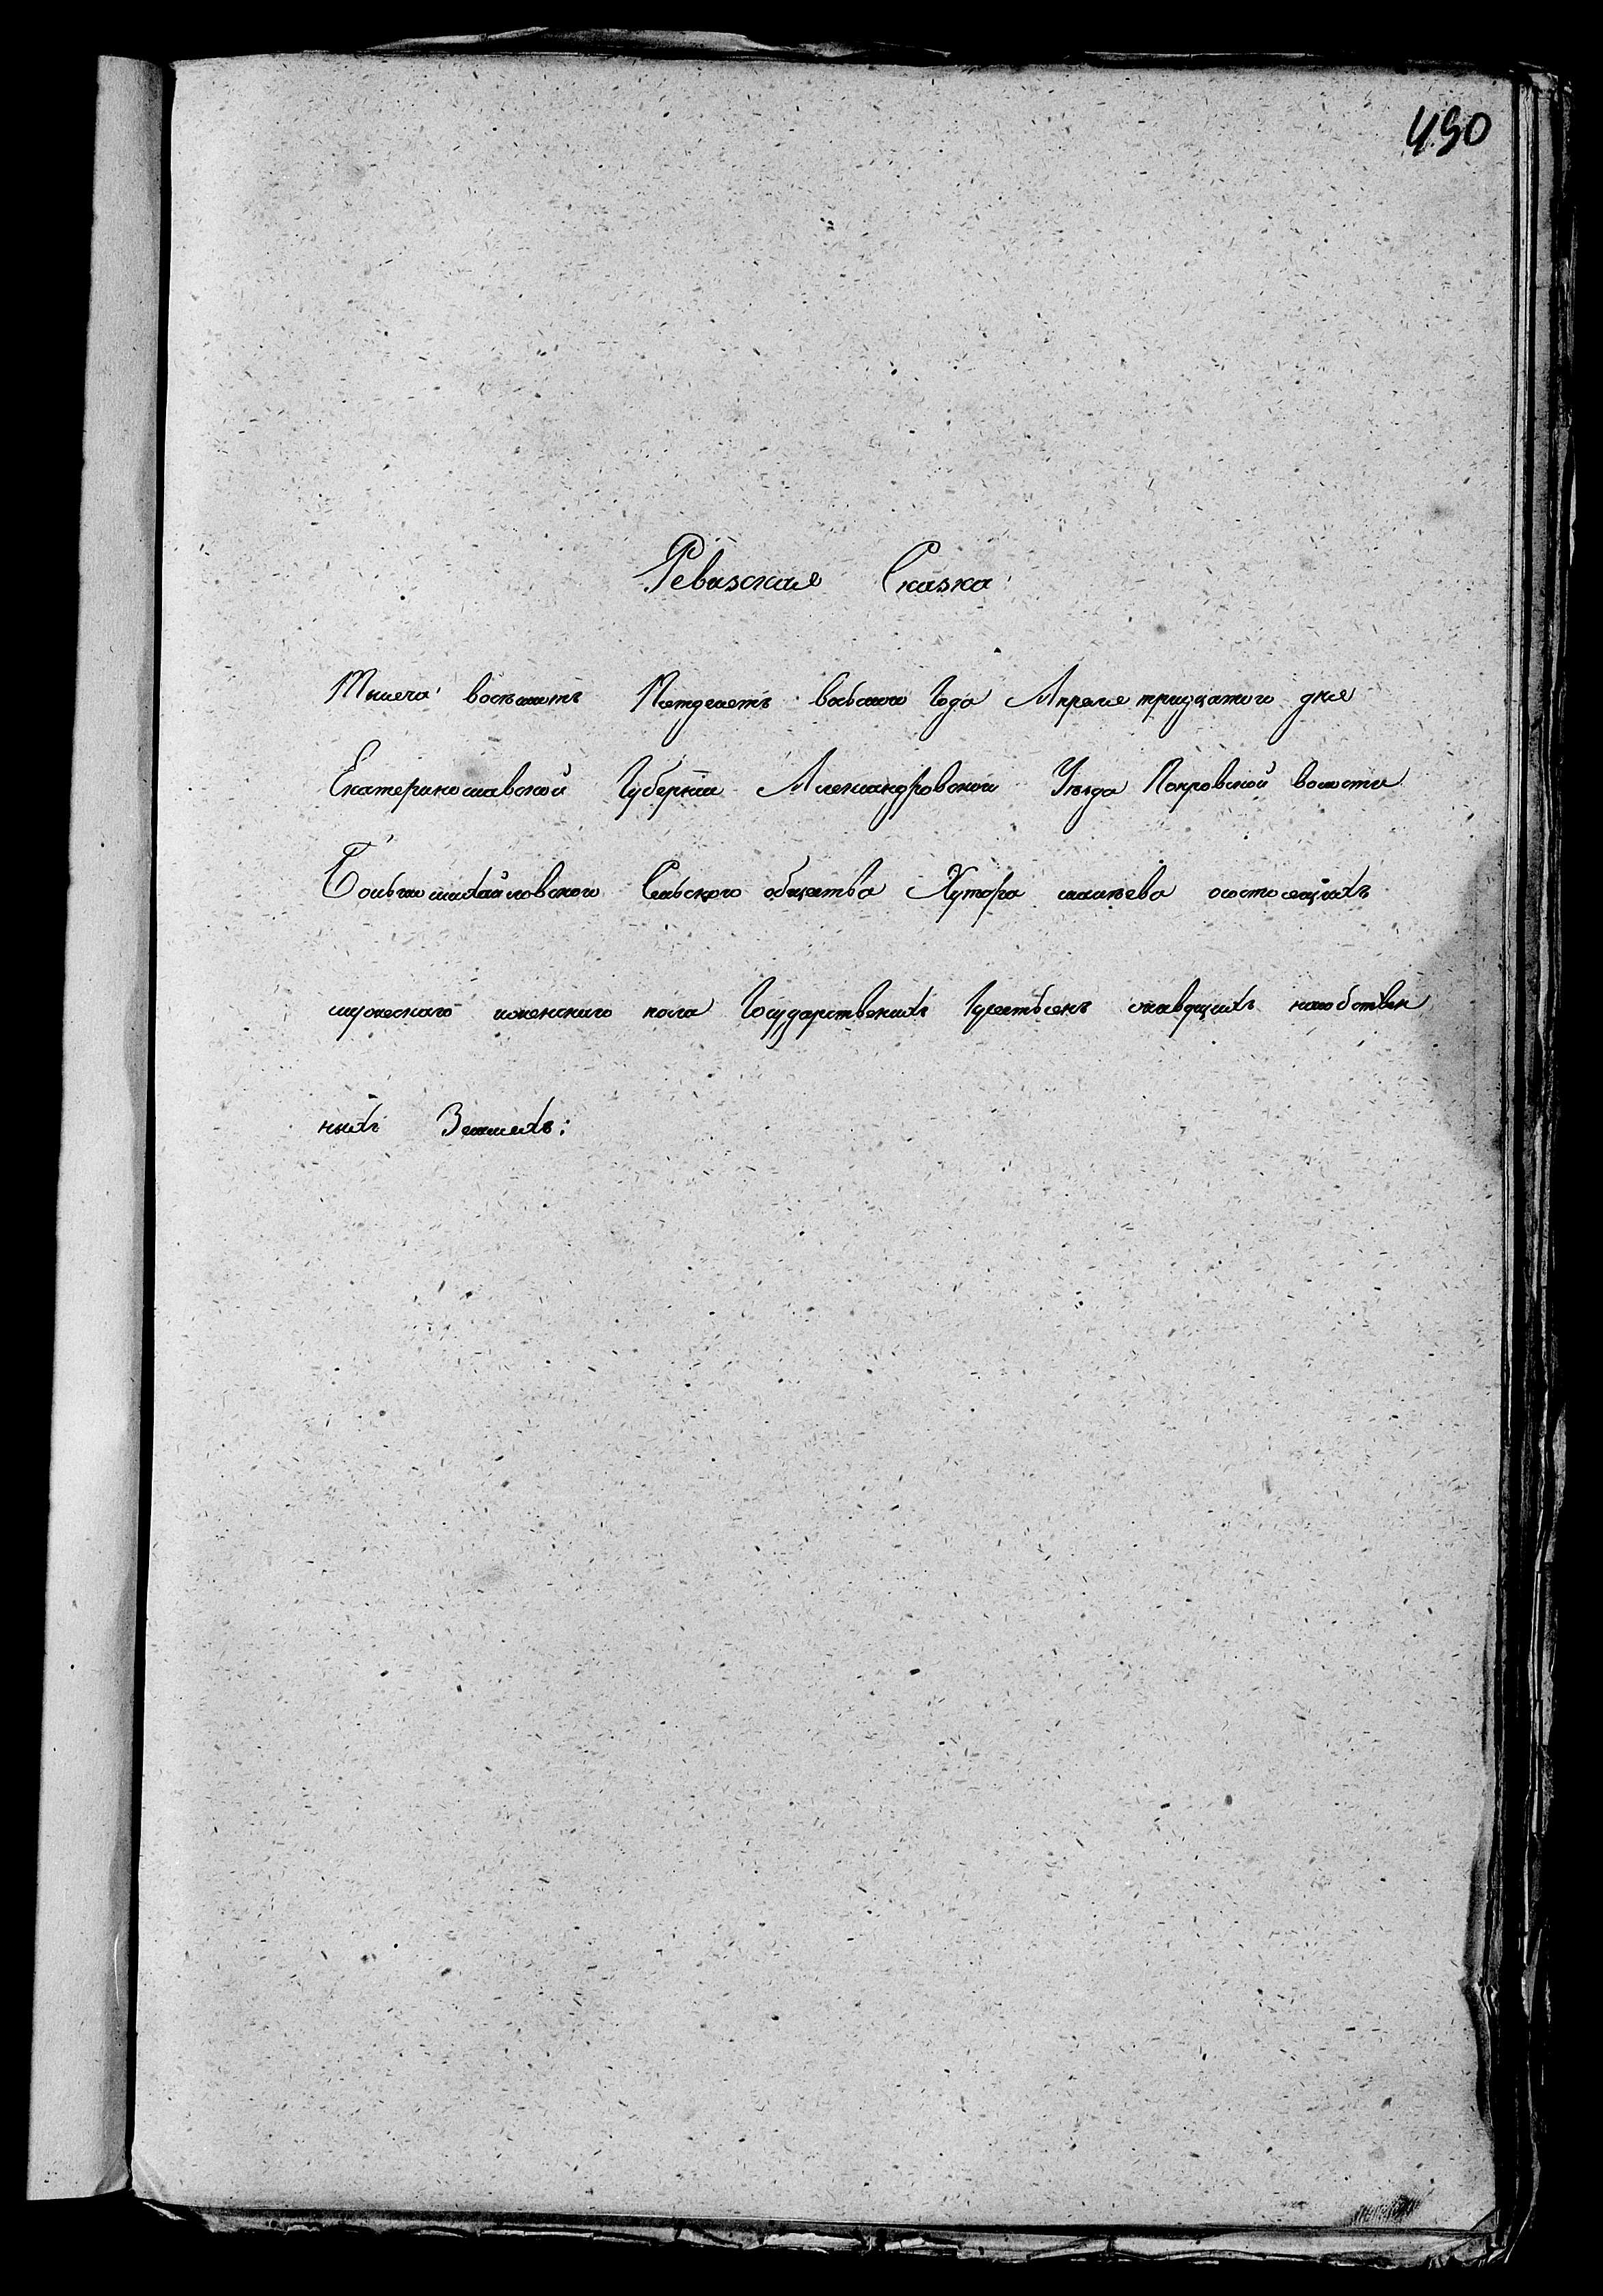 490
Ревизская Сказка
Тысеча восемсотъ Петдесетъ восмого Года Апреля тридцатого дня
Екатеринославской Губернии Александровского Уезда Покровской волости
Большемихайловского Сельского общества Хутора о состоящихъ
мужеского иженского пола Государственихъ Крестьенъ насобствен
ныхъ Землехъ: